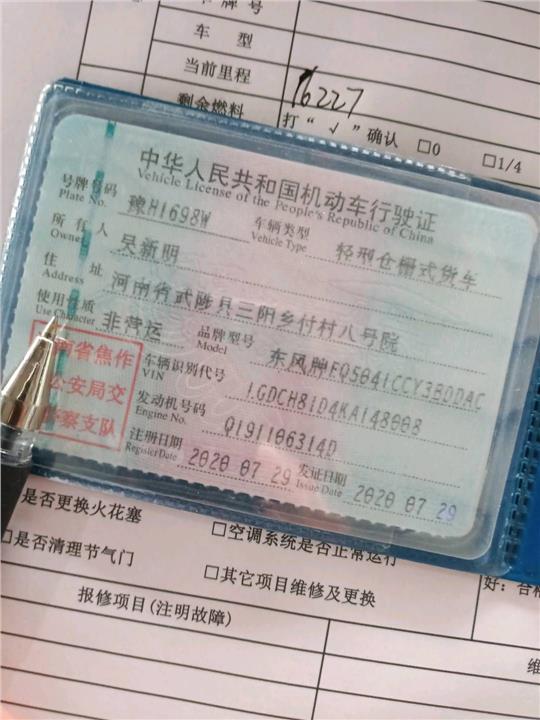 牌号
车 型
当前里程
76227
剩余燃料
打“√”确认 □0 □1/4
中华人民共和国机动车行驶证
Vehicle License of the People's Republic of China
号牌号码 豫H1698W 车辆类型 轻型仓栅式货车
Plate No. Vehicle Type
所有人 吴新明
Owner
住址 河南省武陟县三阳乡付村八号院
Address
使用性质 非营运 品牌型号 东风牌EQ5041CCY3BDDAC
Use Character Model
南省焦作
公安局交
警察支队
车辆识别代号 LGDCH81D4KA148008
VIN
发动机号码 Q191106314D
Engine No.
注册日期 2020 07 29 发证日期 2020 07 29
Register Date Issue Date
是否更换火花塞 □空调系统是否正常运行
□是否清理节气门 □其它项目维修及更换
好：合格
报修项目(注明故障)
维